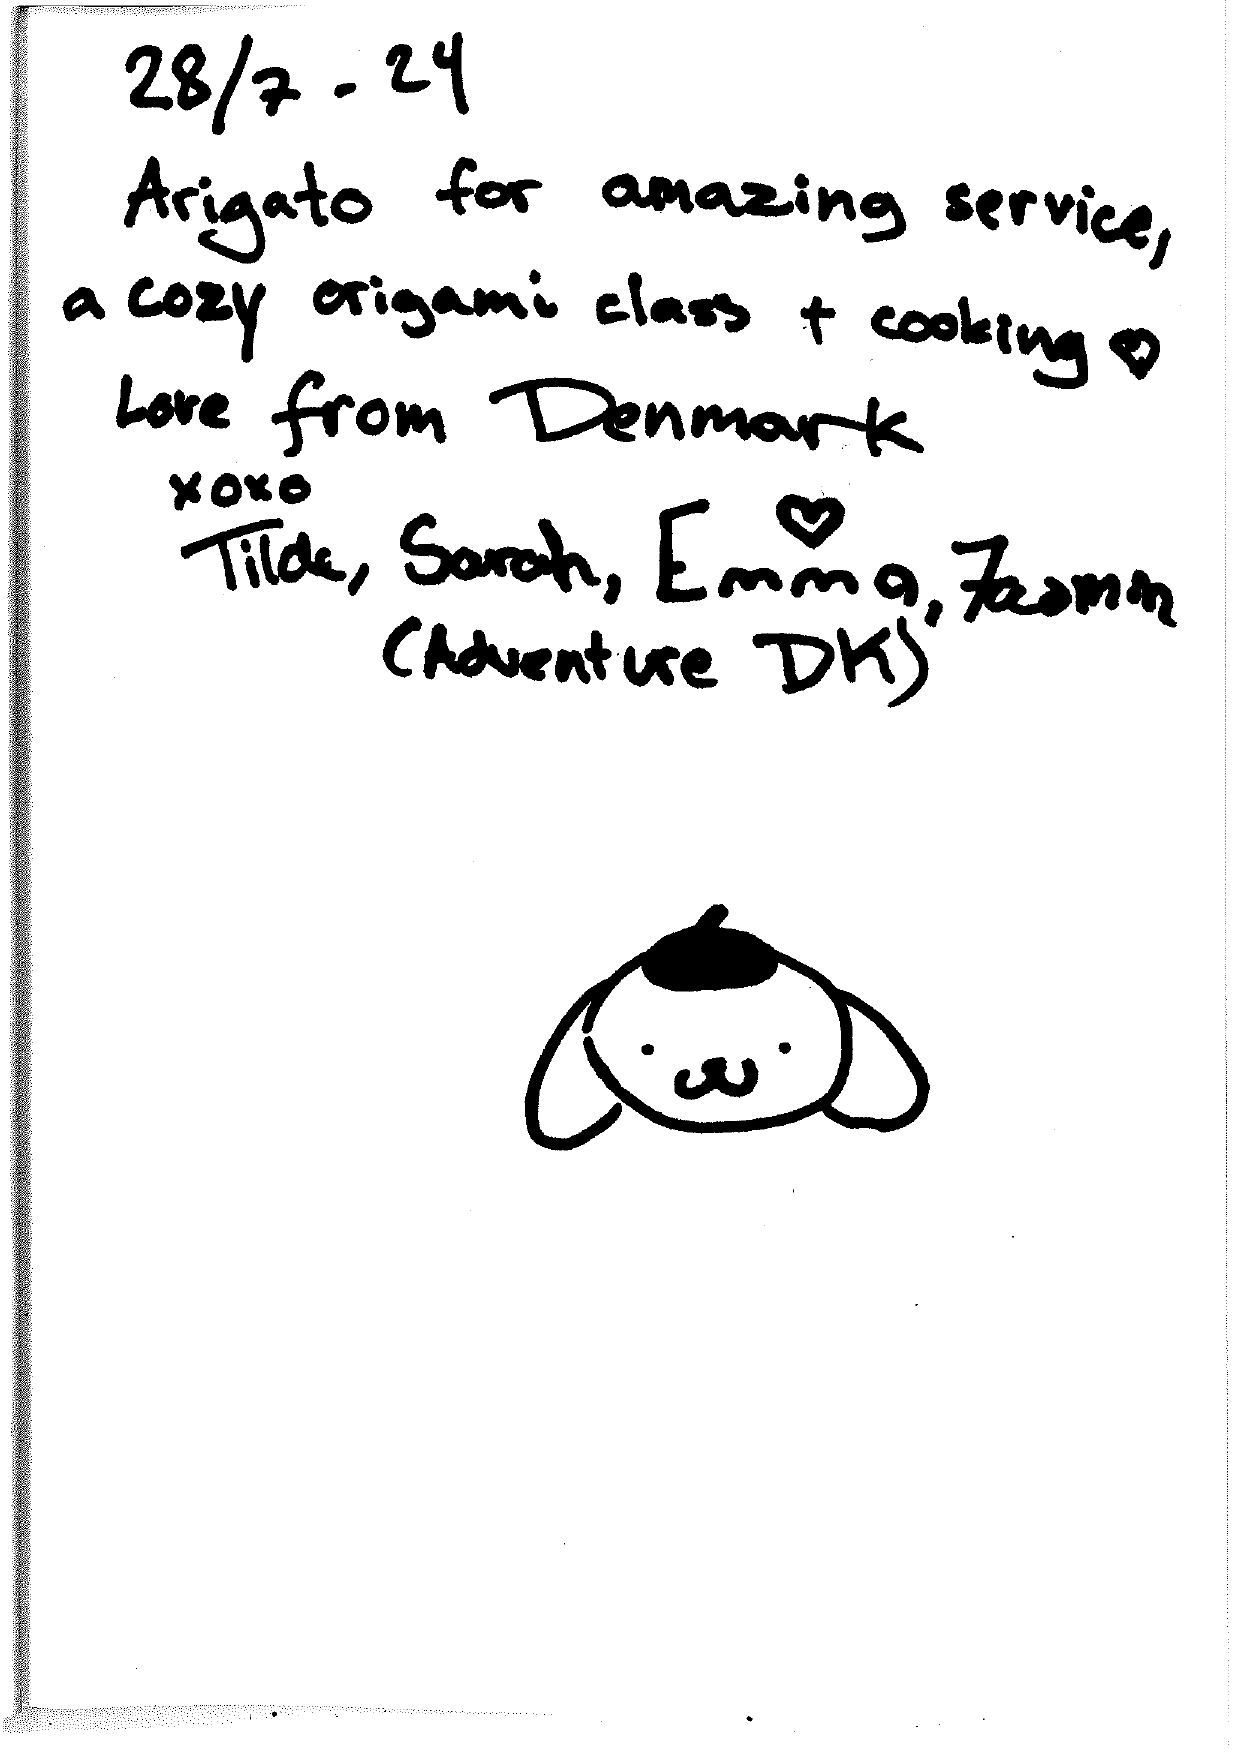 28/7 - 24
Arigato for amazing service,
a cozy origami class + cooking ♡
Love from Denmark
xoxo
Tilde, Sarah, Emma, Jasmin
(Adventure DK)